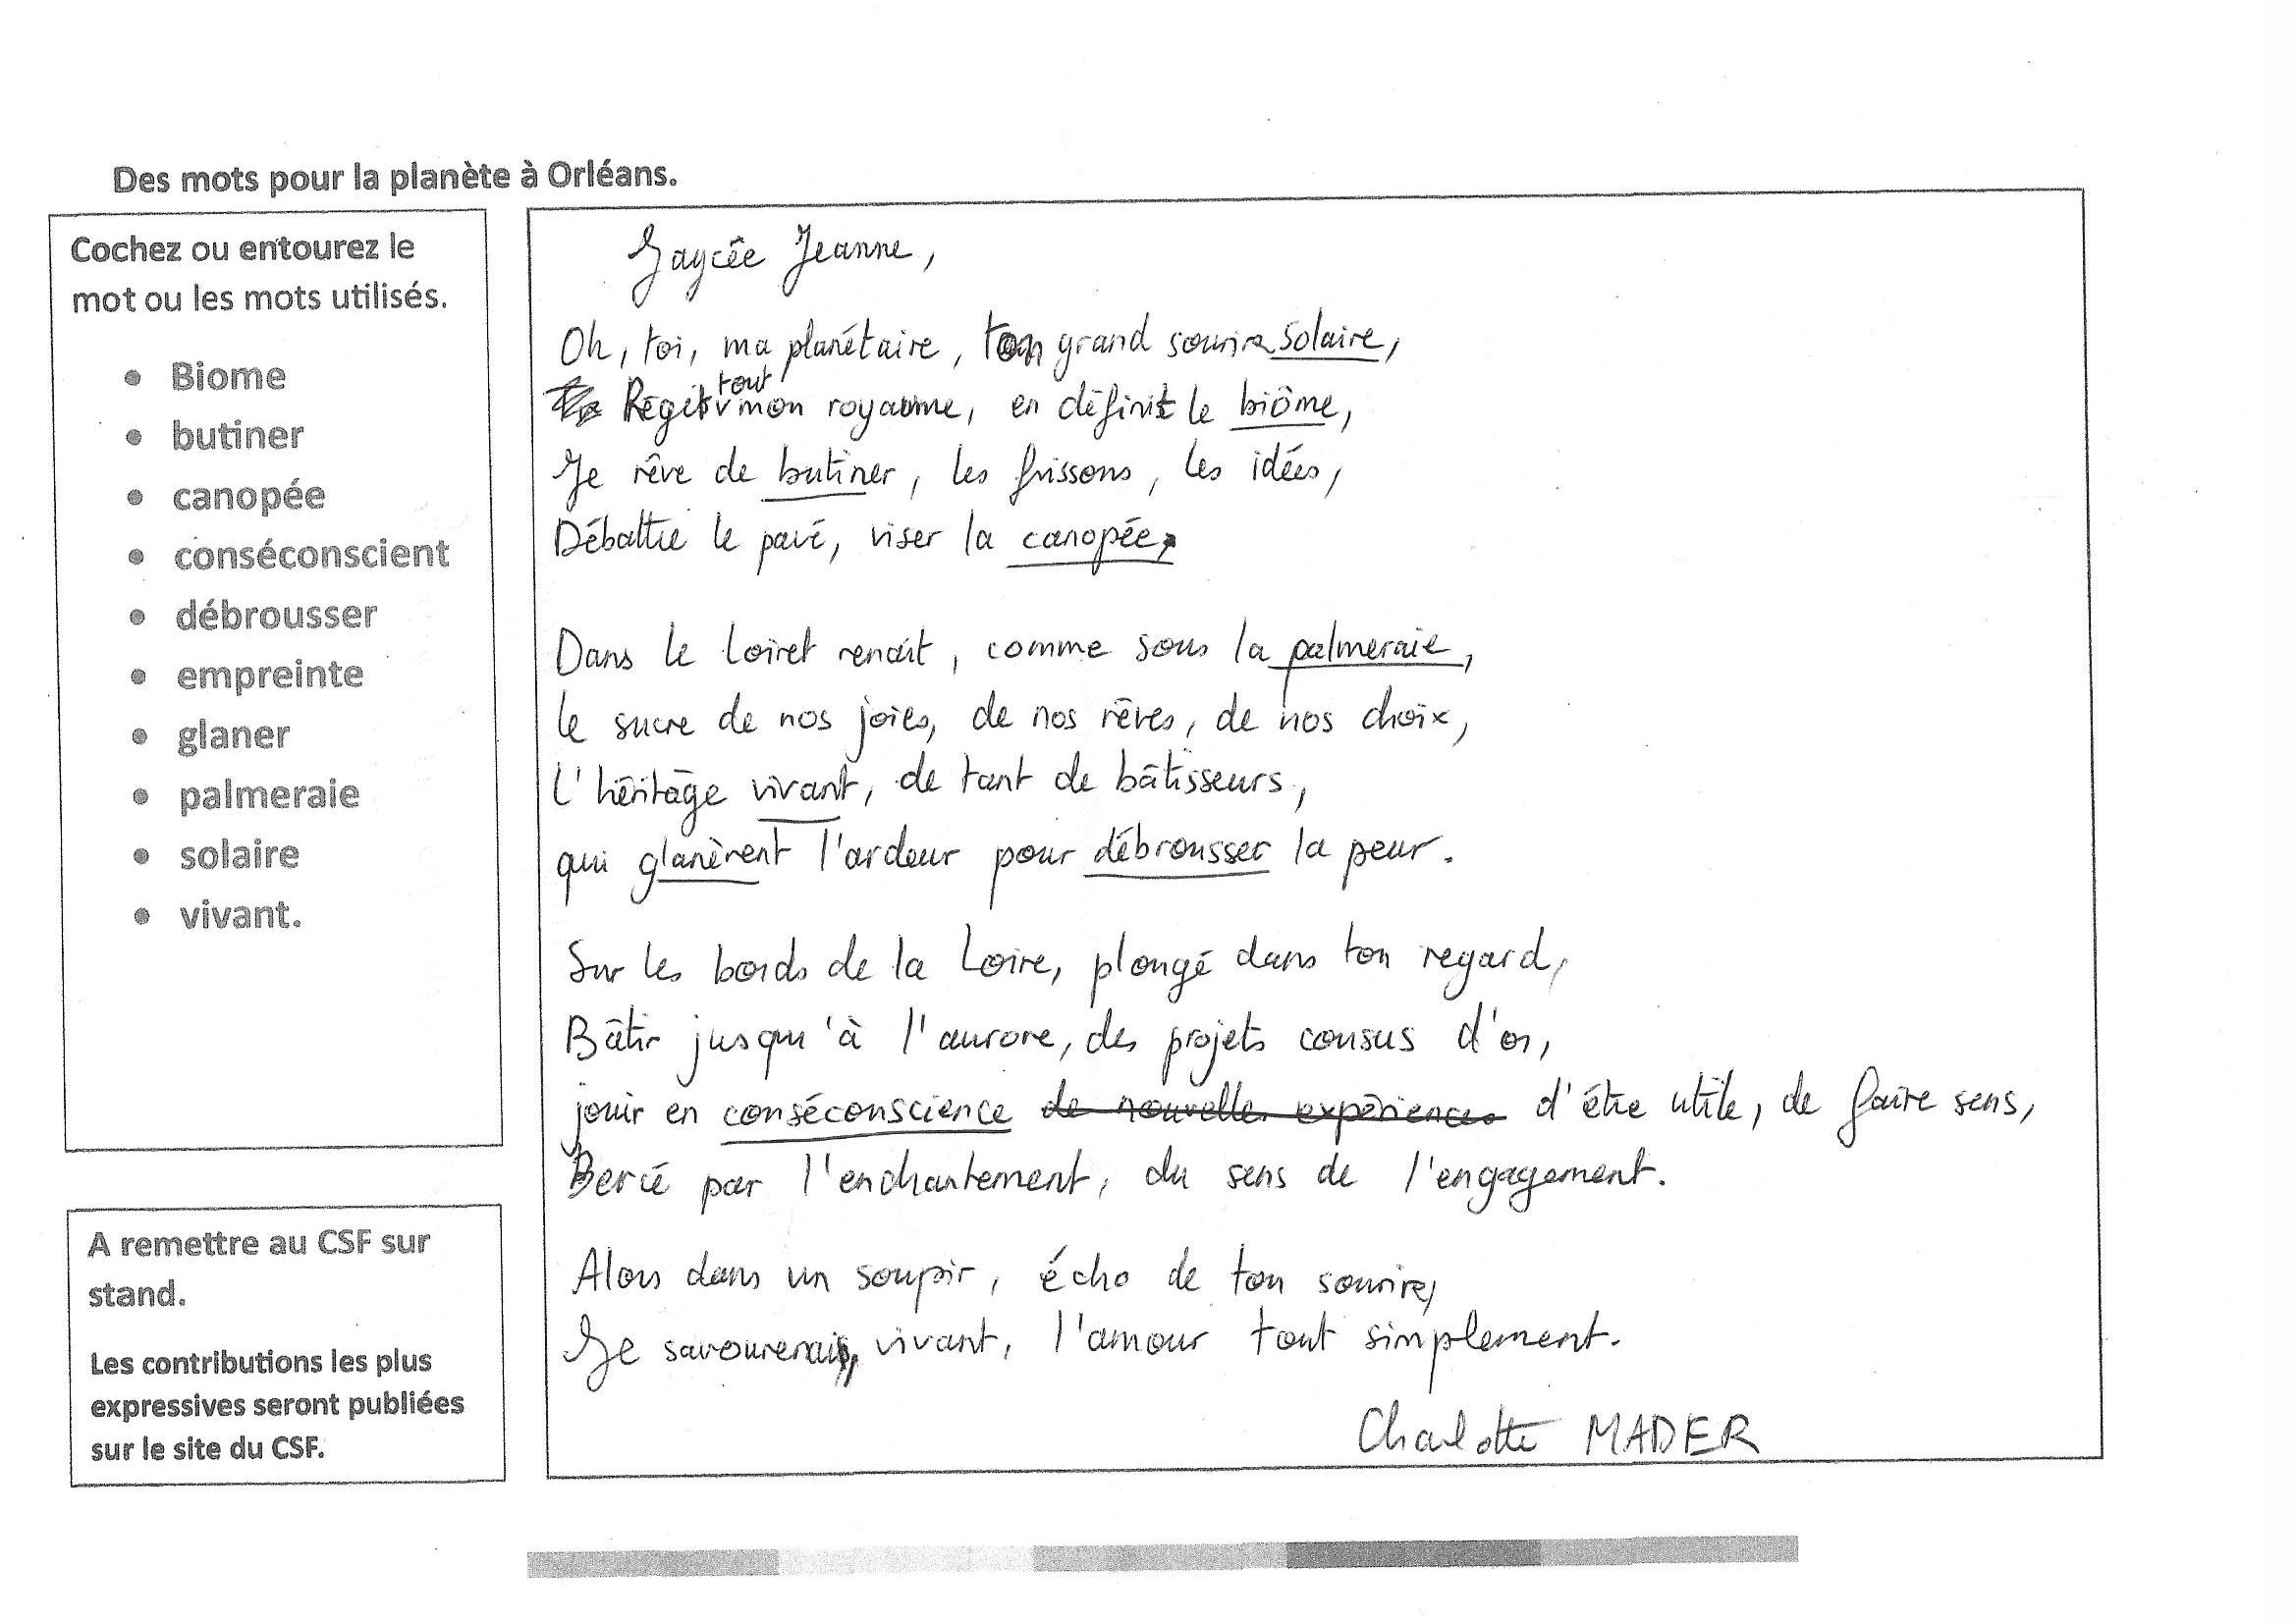 Des mots pour la planète à Orléans.
Cochez ou entourez le
mot ou les mots utilisés.
• Biome
• butiner
• canopée
• conséconscient
• débrousser
• empreinte
• glaner
• palmeraie
• solaire
• vivant.
A remettre au CSF sur
stand.
Les contributions les plus
expressives seront publiées
sur le site du CSF.
Jaycée Jeanne,
Oh, toi, ma planétaire, ton grand sourire solaire,
Régit tout mon royaume, en définit le biôme,
Je rêve de butiner, les frissons, les idées,
Débattre le pavé, viser la canopée,
Dans le Loiret renaît, comme sous la palmeraie,
le sucre de nos joies, de nos rêves, de nos choix,
L'héritage vivant, de tant de bâtisseurs,
qui glanèrent l'ardeur pour débrousser la peur.
Sur les bords de la Loire, plongé dans ton regard,
Bâtir jusqu'à l'aurore, des projets cousus d'or,
jouir en conséconscience de nouvelles expériences d'être utile, de faire sens,
Bercé par l'enchantement, du sens de l'engagement.
Alors dans un soupir, écho de ton sourire,
Je savourerais, vivant, l'amour tout simplement.
Charlotte MADER